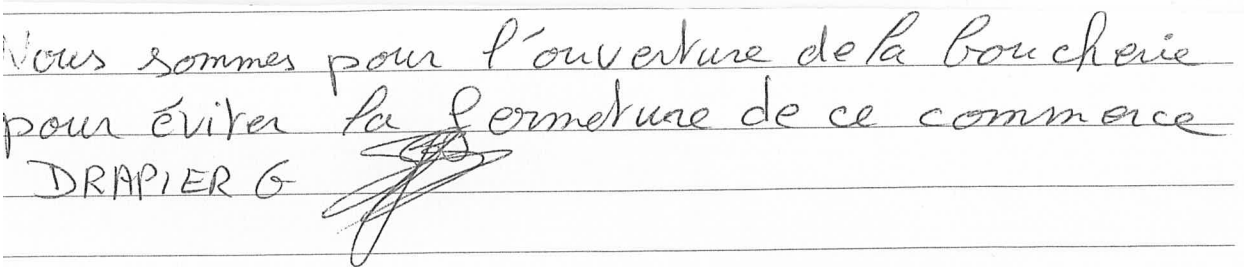 Nous sommes pour l'ouverture de la boucherie
pour éviter la fermeture de ce commerce
DRAPIER G